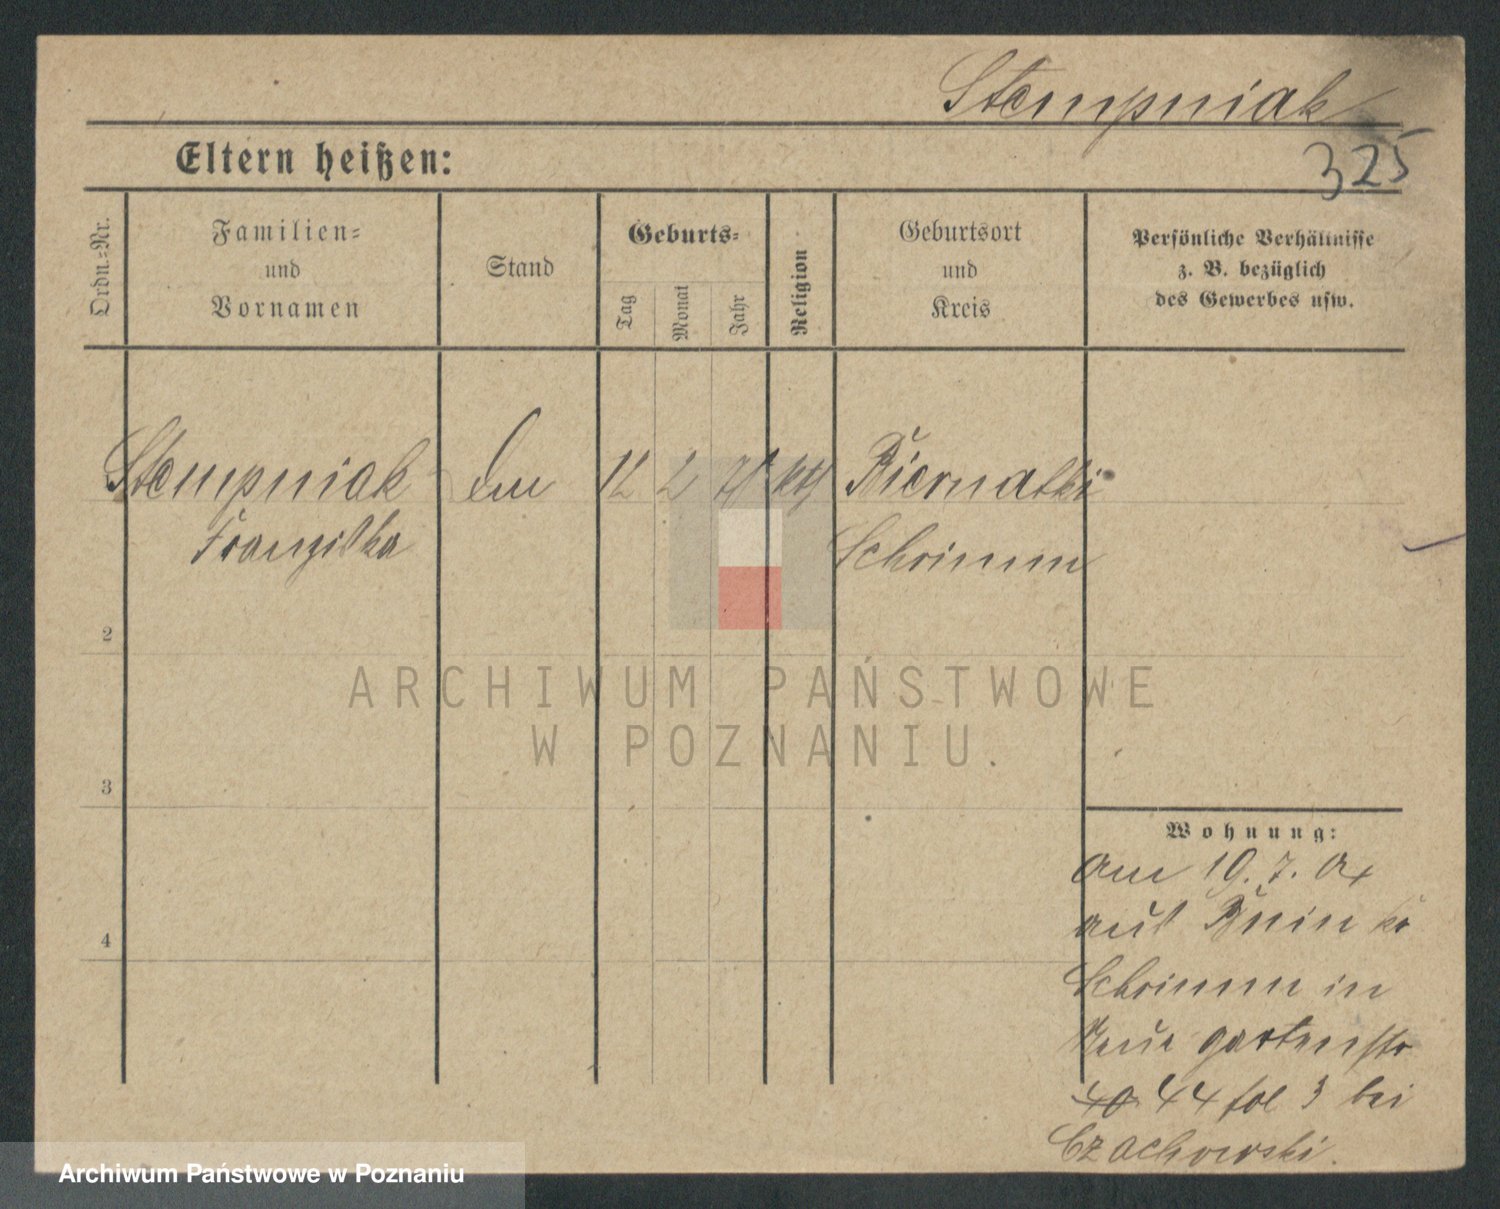 Stempniak
Eltern heißen:
325
Ordn.-Nr.
Familien-
und
Vornamen
Stand
Geburts-
Tag
Monat
Jahr
Religion
Geburtsort
und
Kreis
Persönliche Verhältnisse
z. B. bezüglich
des Gewerbes usw.
Stempniak
12 2
kth
Biernatki
Franziska
Schrimm
2
3
4
Wohnung:
am 19. 7. 04
aus Bnin kr
Schrimm in
Neue gartenstr
40 44 fol 3 bei
Czachowski.
ARCHIWUM PAŃSTWOWE
W POZNANIU.
Archiwum Państwowe w Poznaniu